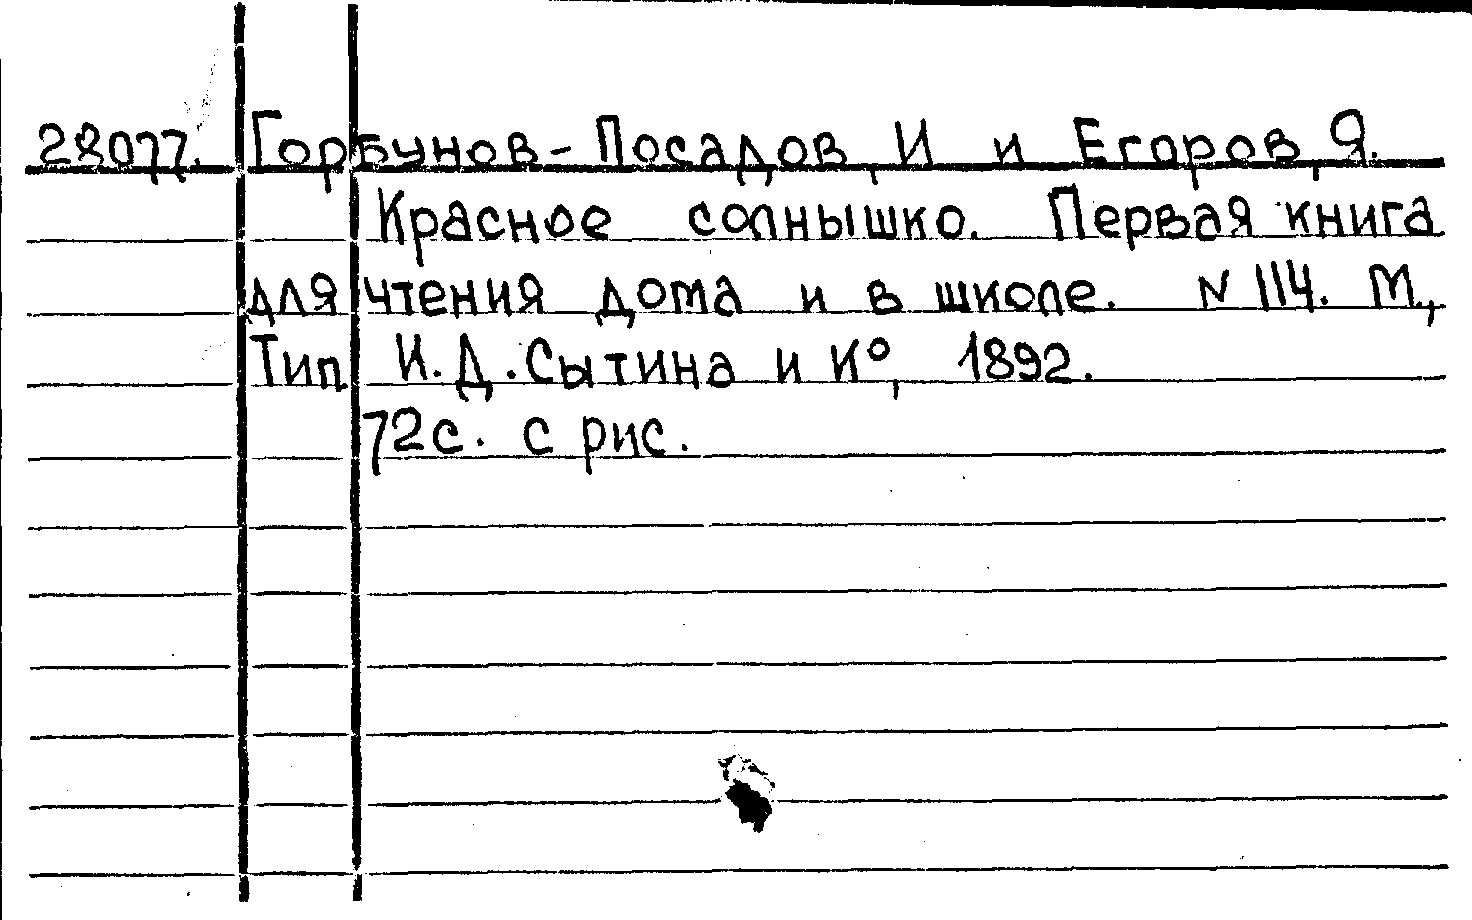 28077. Горбунов-Посадов, И и Егоров, Я.
Красное солнышко. Первая книга
для чтения дома и в школе. N 114. М.,
Тип И.Д. Сытина и К°, 1892.
72с. с рис.